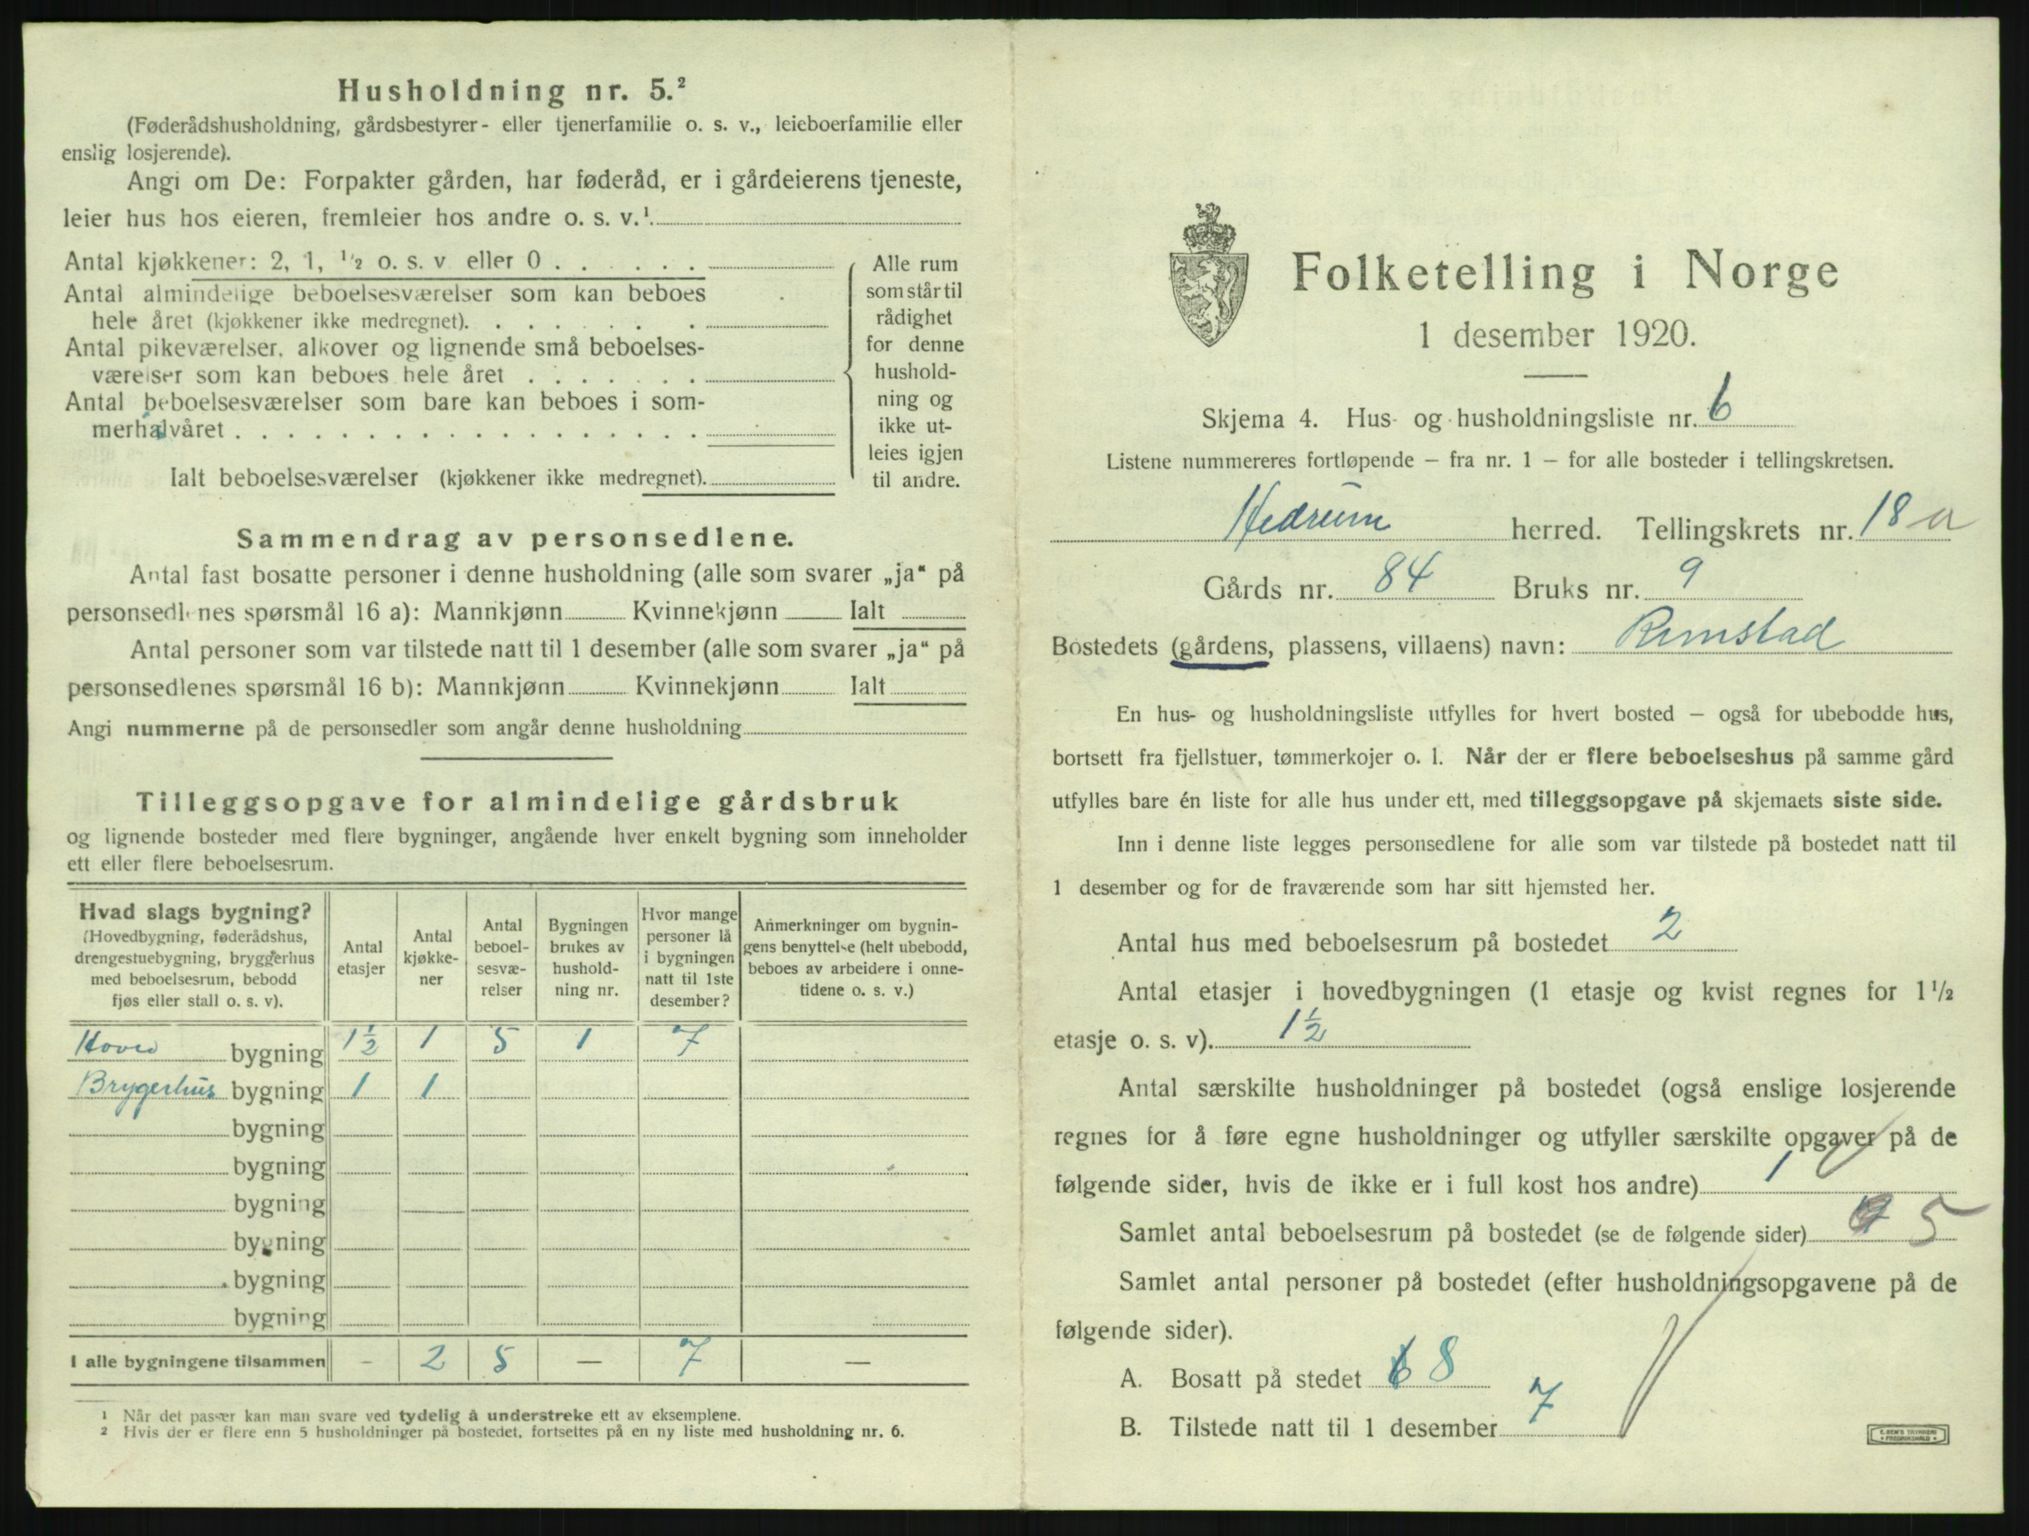 Husholdning nr. 5.²
(Føderådshusholdning, gårdsbestyrer- eller tjenerfamilie o. s. v., leieboerfamilie eller
enslig losjerende).
Angi om De: Forpakter gården, har føderåd, er i gårdeierens tjeneste,
leier hus hos eieren, fremleier hos andre o. s. v.¹
Antal kjøkkener: 2, 1, ½ o. s. v eller 0 . . . . . .
Antal almindelige beboelsesværelser som kan beboes
hele året (kjøkkener ikke medregnet). . . . . . . . .
Antal pikeværelser, alkover og lignende små beboelses-
værelser som kan beboes hele året . . . . . . .
Antal beboelsesværelser som bare kan beboes i som-
merhalvåret . . . . . . . . . . . . . . . . . .
Ialt beboelsesværelser (kjøkkener ikke medregnet).
Alle rum
som står til
rådighet
for denne
hushold-
ning og
ikke ut-
leies igjen
til andre.
Sammendrag av personsedlene.
Antal fast bosatte personer i denne husholdning (alle som svarer „ja“ på
personsedlenes spørsmål 16 a): Mannkjønn Kvinnekjønn Ialt
Antal personer som var tilstede natt til 1 desember (alle som svarer „ja“ på
personsedlenes spørsmål 16 b): Mannkjønn Kvinnekjønn Ialt
Angi nummerne på de personsedler som angår denne husholdning
Tilleggsopgave for almindelige gårdsbruk
og lignende bosteder med flere bygninger, angående hver enkelt bygning som inneholder
ett eller flere beboelsesrum.
Hvad slags bygning?
(Hovedbygning, føderådshus,
drengestuebygning, bryggerhus
med beboelsesrum, bebodd
fjøs eller stall o. s. v).
Antal
etasjer
Antal
kjøkke-
ner
Antal
beboel-
sesvæ-
relser
Bygningen
brukes av
hushold-
ning nr.
Hvor mange
personer lå
i bygningen
natt til 1ste
desember?
Anmerkninger om bygnin-
gens benyttelse (helt ubebodd,
beboes av arbeidere i onne-
tidene o. s. v.)
Hoved bygning 1½ 1 5 1 7
Brygerhus bygning 1 1
bygning
bygning
bygning
bygning
bygning
bygning
I alle bygningene tilsammen - 2 5 — 7 —
¹ Når det passer kan man svare ved tydelig å understreke ett av eksemplene.
² Hvis der er flere enn 5 husholdninger på bostedet, fortsettes på en ny liste med husholdning nr. 6.
Folketelling i Norge
1 desember 1920.
Skjema 4. Hus- og husholdningsliste nr. 6
Listene nummereres fortløpende – fra nr. 1 – for alle bosteder i tellingskretsen.
Hedrum herred. Tellingskrets nr. 18 a
Gårds nr. 84 Bruks nr. 9
Bostedets (gårdens, plassens, villaens) navn: Rimstad
En hus- og husholdningsliste utfylles for hvert bosted – også for ubebodde hus,
bortsett fra fjellstuer, tømmerkojer o. l. Når der er flere beboelseshus på samme gård
utfylles bare én liste for alle hus under ett, med tilleggsopgave på skjemaets siste side.
Inn i denne liste legges personsedlene for alle som var tilstede på bostedet natt til
1 desember og for de fraværende som har sitt hjemsted her.
Antal hus med beboelsesrum på bostedet 2
Antal etasjer i hovedbygningen (1 etasje og kvist regnes for 1½
etasje o. s. v). 1½
Antal særskilte husholdninger på bostedet (også enslige losjerende
regnes for å føre egne husholdninger og utfyller særskilte opgaver på de
følgende sider, hvis de ikke er i full kost hos andre) 1
Samlet antal beboelsesrum på bostedet (se de følgende sider) 5
Samlet antal personer på bostedet (efter husholdningsopgavene på de
følgende sider).
A. Bosatt på stedet 8
B. Tilstede natt til 1 desember 7